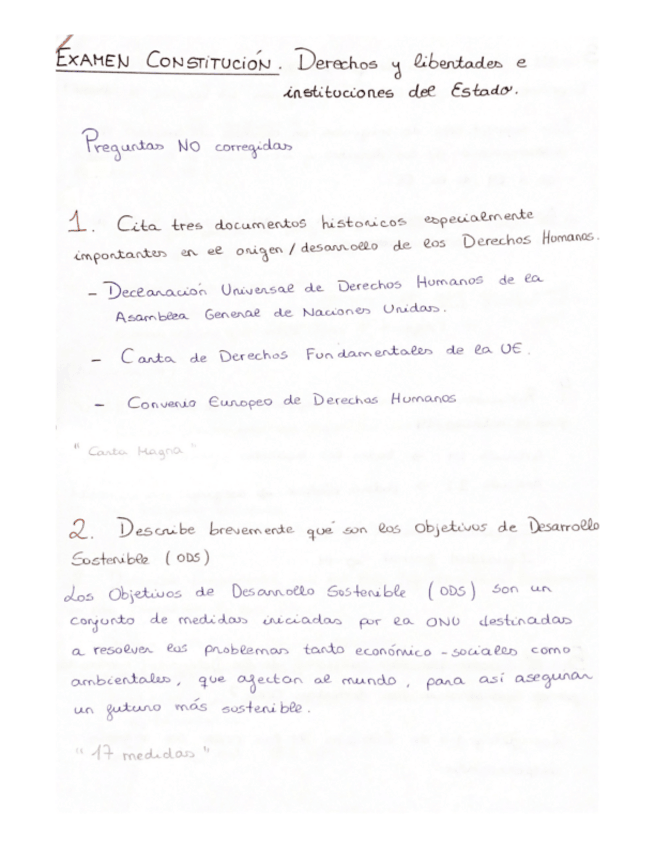 EXAMEN CONSTITUCIÓN. Derechos y libertades e
instituciones del Estado.
Preguntas NO corregidas
1. Cita tres documentos historicos especialmente
importantes en el origen / desarrollo de los Derechos Humanos.
- Declaración Universal de Derechos Humanos de la
Asamblea General de Naciones Unidas.
- Carta de Derechos Fundamentales de la UE.
- Convenio Europeo de Derechos Humanos
"Carta Magna"
2. Describe brevemente qué son los Objetivos de Desarrollo
Sostenible (ODS)
Los Objetivos de Desarrollo Sostenible (ODS) son un
conjunto de medidas iniciadas por la ONU destinadas
a resolver los problemas tanto económico-sociales como
ambientales, que afectan al mundo, para así asegurar
un futuro más sostenible.
"17 medidas"